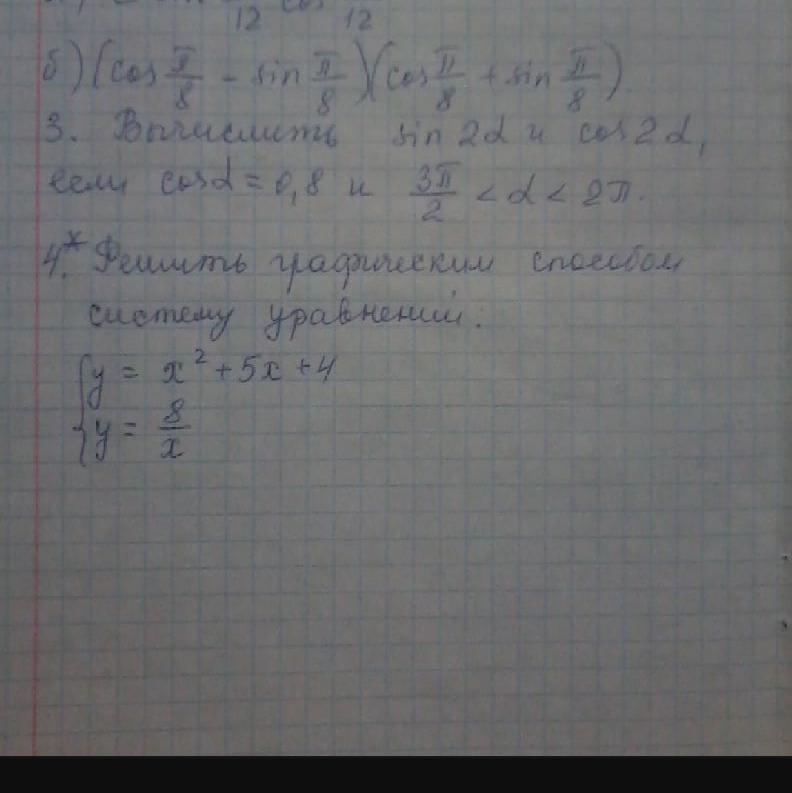 12 cos 12
б) (cos π/8 - sin π/8)(cos π/8 + sin π/8)
3. Вычислить sin 2α и cos 2α,
если cos α = 0,8 и 3π/2 < α < 2π.
4.* Решить графическим способом
систему уравнений:
{ y = x² + 5x + 4
{ y = 8/x